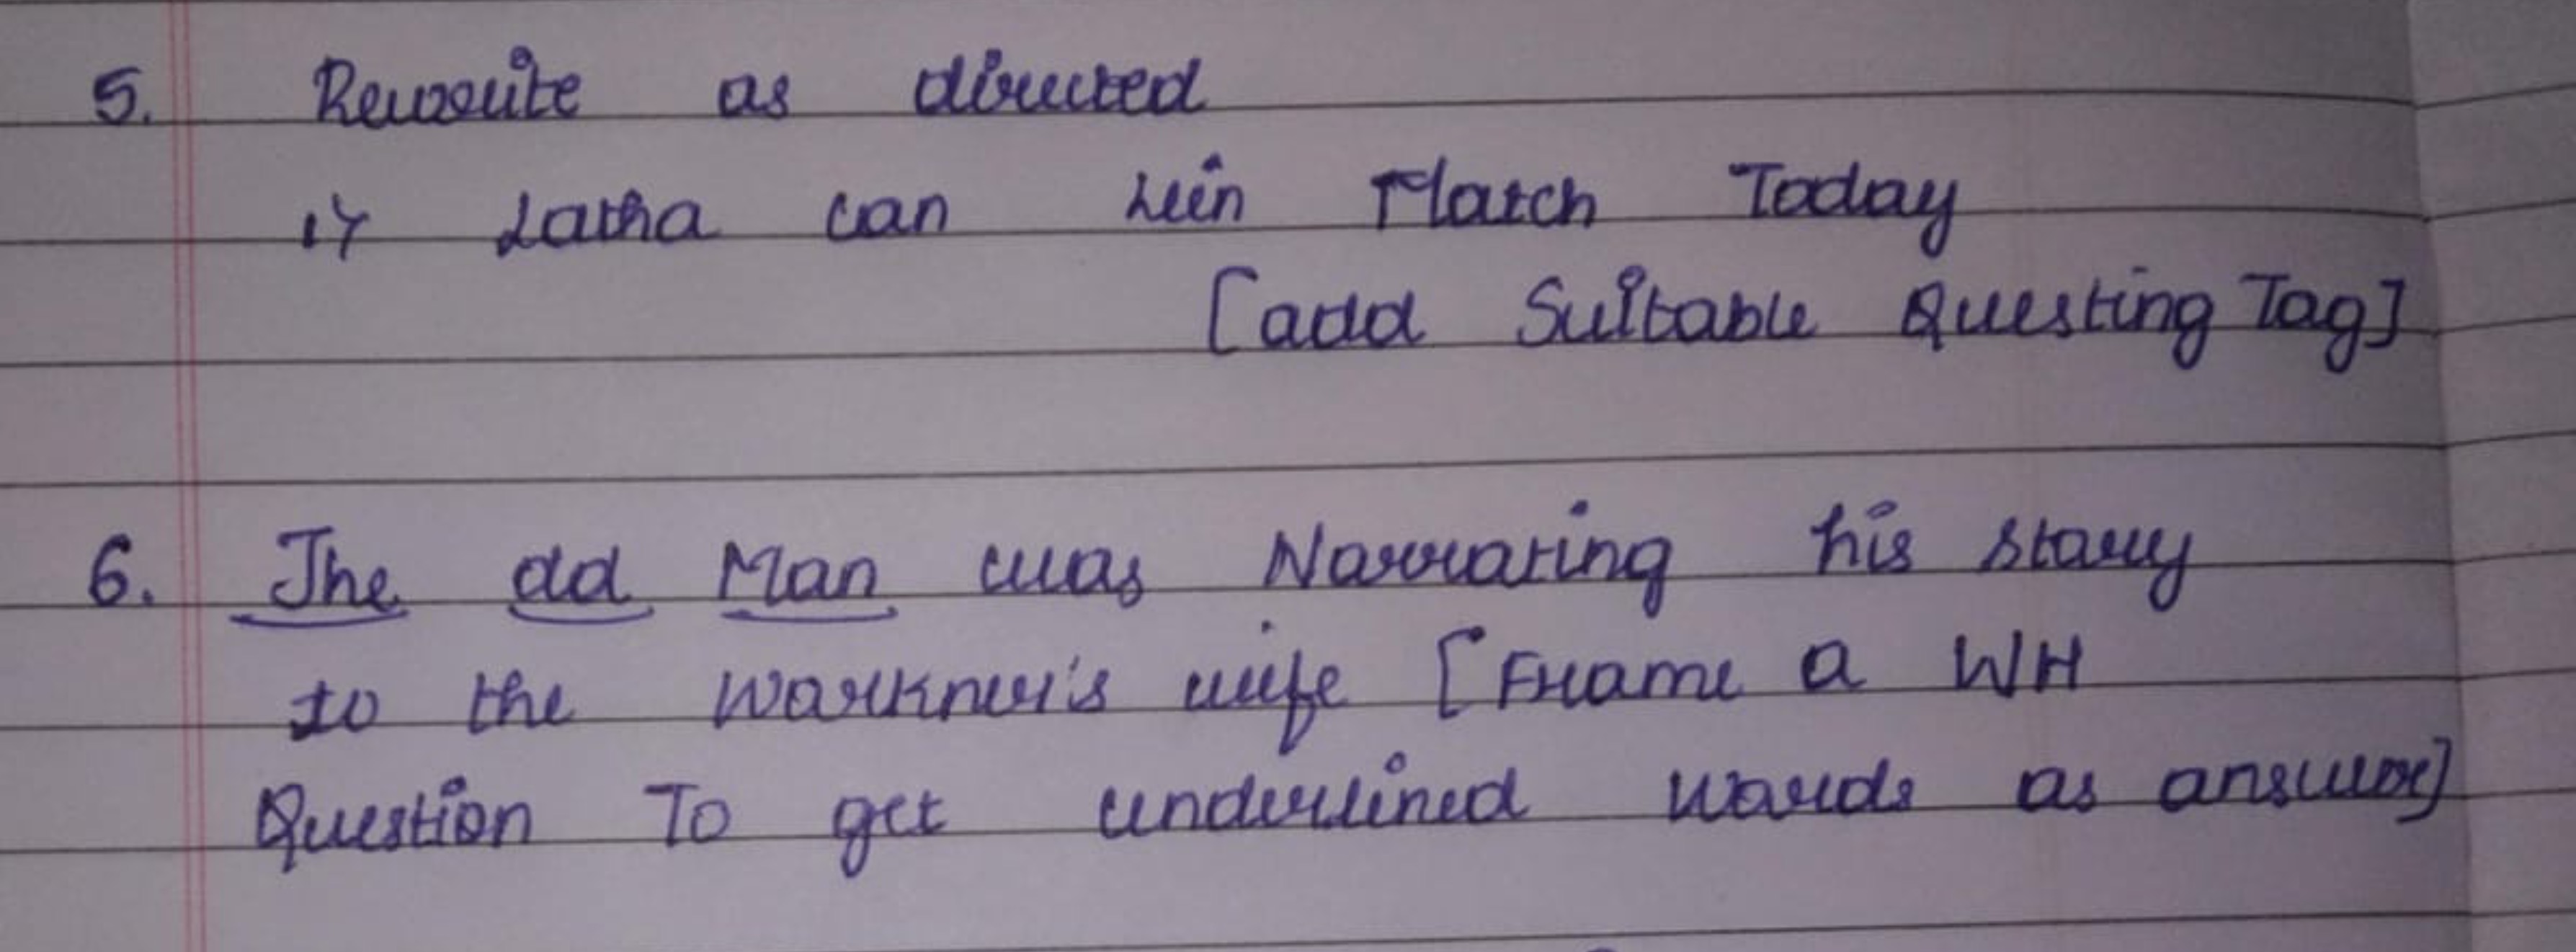 5. Rewrite as directed
1) Latha can win Match Today
[add Suitable Questing Tag]
6. The old Man was Narrating his story
to the Warkner's wife [Frame a WH
Question To get underlined words as answer]